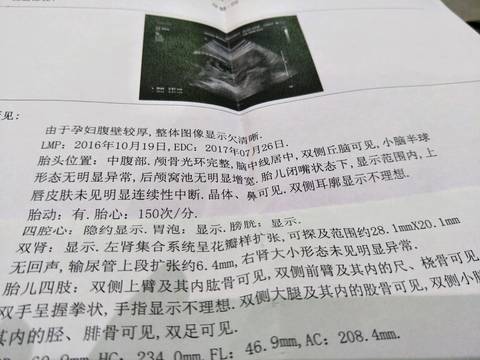 见:
由于孕妇腹壁较厚,整体图像显示欠清晰.
LMP: 2016年10月19日, EDC: 2017年07月26日.
胎头位置: 中腹部. 颅骨光环完整, 脑中线居中, 双侧丘脑可见, 小脑半球
形态无明显异常, 后颅窝池无明显增宽. 胎儿闭嘴状态下, 显示范围内, 上
唇皮肤未见明显连续性中断. 晶体、鼻可见. 双侧耳廓显示不理想.
胎动: 有. 胎心: 150次/分.
四腔心: 隐约显示. 胃泡: 显示. 膀胱: 显示.
双肾: 显示. 左肾集合系统呈花瓣样扩张, 可探及范围约28.1mmX20.1mm
无回声, 输尿管上段扩张约6.4mm, 右肾大小形态未见明显异常.
胎儿四肢: 双侧上臂及其内肱骨可见, 双侧前臂及其内的尺、桡骨可见,
双手呈握拳状, 手指显示不理想. 双侧大腿及其内的股骨可见, 双侧小
其内的胫、腓骨可见, 双足可见.
HC: 234.0mm. FL: 46.9mm, AC: 208.4mm.